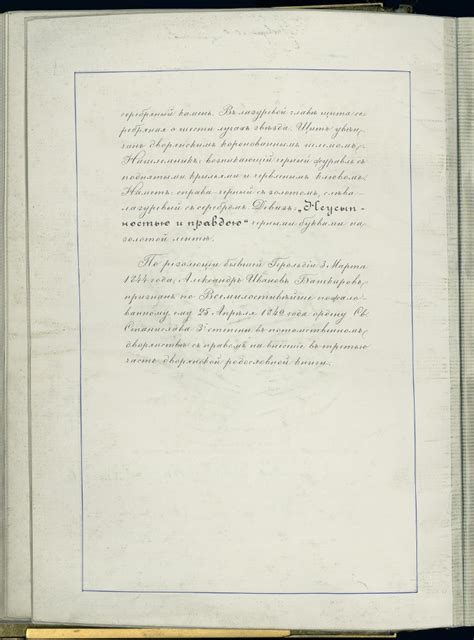 серебряный камень. Въ лазуревой главѣ щита се-
ребряная о шести лучахъ звѣзда. Щитъ увѣн-
чанъ дворянскимъ коронованнымъ шлемомъ.
Нашлемникъ: возникающій черный журавль съ
поднятыми крыльями и червленымъ клювомъ.
Наметъ: справа черный съ золотомъ, слѣва
лазуревый съ серебромъ. Девизъ: „Неусып-
ностью и правдою“ черными буквами на
золотой лентѣ.
По резолюціи бывшей Герольдіи 3 Марта
1844 года, Александръ Ивановъ
признанъ по Всемилостивѣйше пожало-
ванному ему 25 Апрѣля 1842 года ордену Св.
Станислава 3й степени въ потомственномъ
дворянствѣ съ правомъ на внесеніе въ третью
часть дворянской родословной книги.